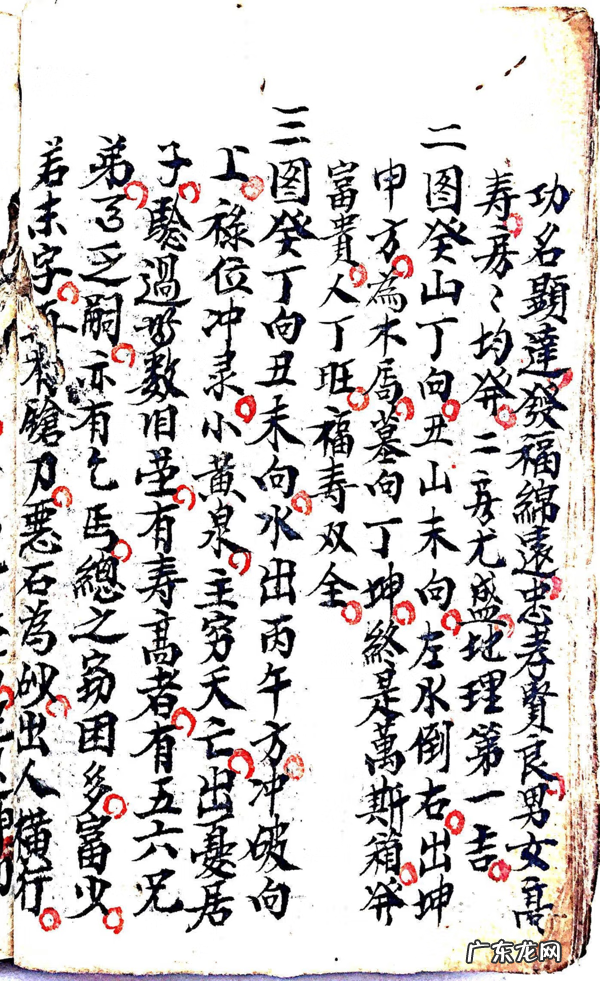 功名顯達發福綿遠忠孝賢良男女髙
寿房〻均発二房尤盛地理第一吉
二图癸山丁向丑山未向左水倒右出坤
申方為木局墓向丁坤終是萬斯箱発
富貴人丁旺福寿双全
三图癸丁向丑未向水出丙午方冲破向
上禄位冲录小黄泉主穷夭亡出憂居
子驗過数旧茔有寿髙者有五六兄
弟乏嗣亦有乞丐總之窮困多富少
若未字木鎗刀惡石為砂出人横行
广东龙网